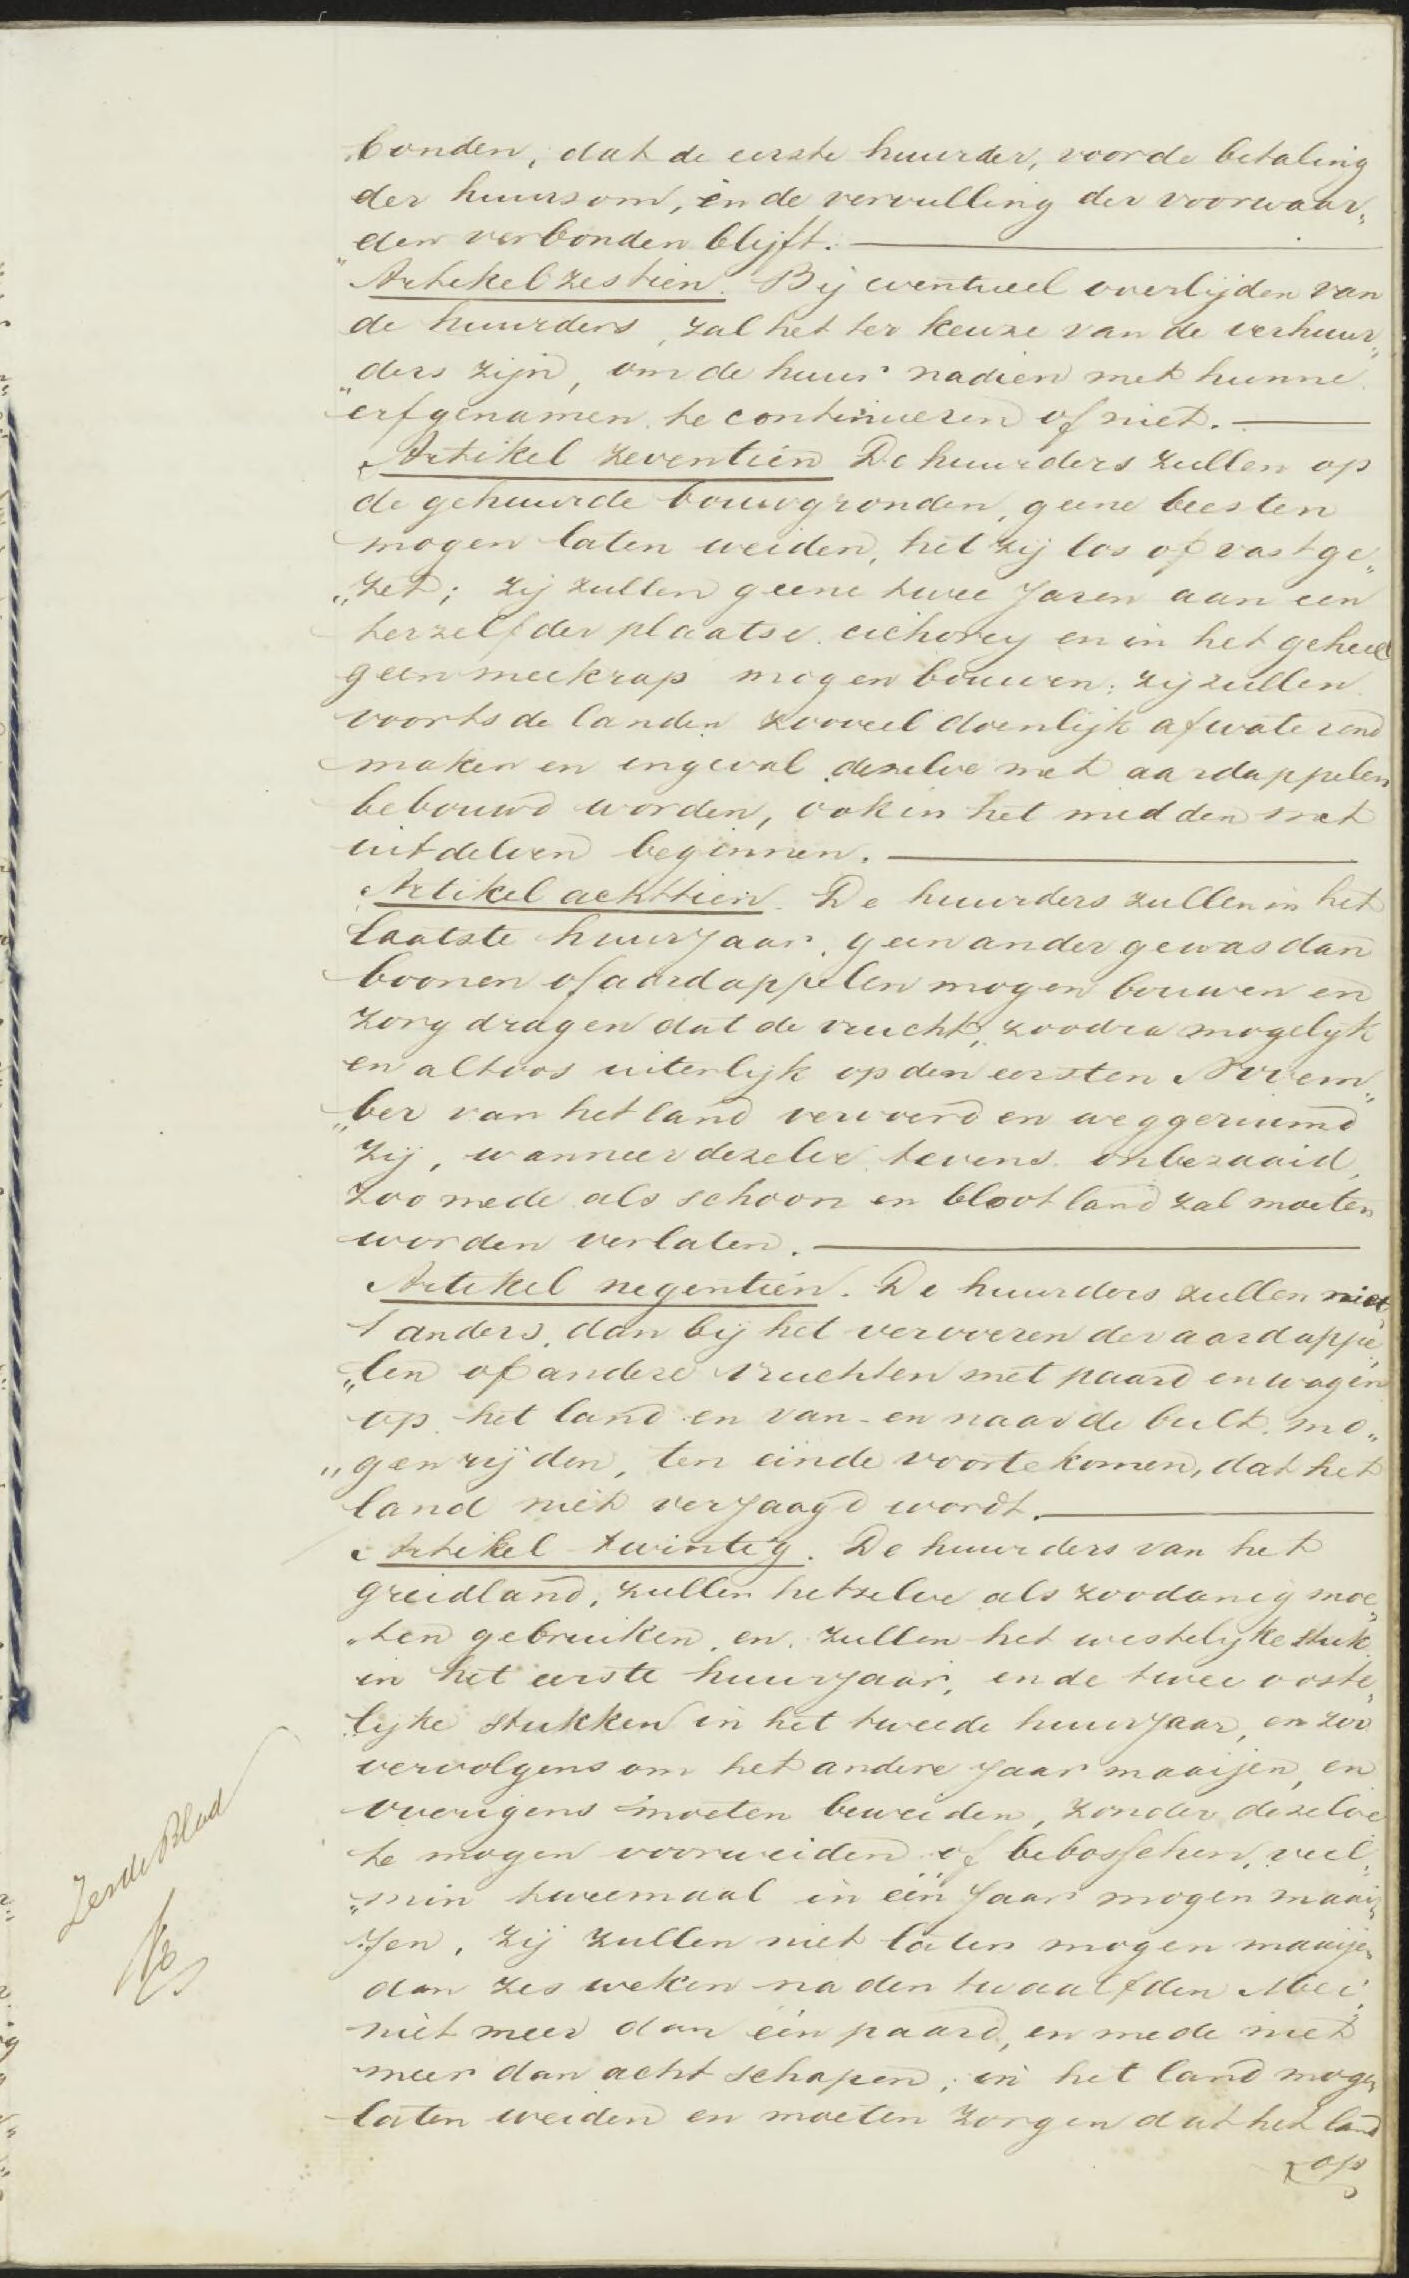 bonden, dat de eerste huurder, voor de betaling
der huursom, en de vervulling der voorwaar„
den verbonden blijft. —
„Artikel zestien. Bij eventueel overlijden van
de huurders, zal het ter keuze van de verhuur„
„ders zijn, om de huur nadien met hunne
erfgenamen te continueren of niet. —
Artikel zeventien De huurders zullen op
de gehuurde bouwgronden, geene beesten
mogen laten weiden, het zij los of vastge„
„zet; zij zullen geene twee jaren aan een
terzelfder plaatse cichorey en in het geheel
geen meekrap mogen bouwen; zij zullen
voorts de landen zooveel doenlijk afwaterend
maken en ingeval dezelve met aardappelen
bebouwd worden, ook in het midden met
uitdelven beginnen. —
Artikel achttien. De huurders zullen in het
laatste huurjaar geen ander gewas dan
boonen of aardappelen mogen bouwen en
zorg dragen dat de vrucht, zoodra mogelijk
en altoos uiterlijk op den eersten Novem„
„ber van het land vervoerd en weggeruimd
zij, wanneer dezelve tevens onbezaaid,
zoo mede als schoon en bloot land zal moeten
worden verlaten. —
Artikel negentien. De huurders zullen niet
anders dan bij het vervoeren der aardappe„
„len of andere vruchten met paard en wagen
op het land en van- en naar de bult mo„
„gen rijden, ten einde voortekomen, dat het
land niet verjaagd wordt. —
Artikel twintig. De huurders van het
greidland, zullen hetzelve als zoodanig moe„
„ten gebruiken, en zullen het westelijke stuk
in het eerste huurjaar, en de twee ooste„
lijke stukken in het tweede huurjaar, en zoo
vervolgens om het andere jaar maaijen, en
overigens moeten beweiden, zonder dezelve
te mogen voorweiden of bebosschen, veel„
„min tweemaal in één jaar mogen maai„
jen, zij zullen niet later mogen maaijen
dan zes weken na den twaalfden Mei,
niet meer dan één paard, en mede niet
meer dan acht schapen, in het land mogen
laten weiden en moeten zorgen dat het land
op
Zesde Blad